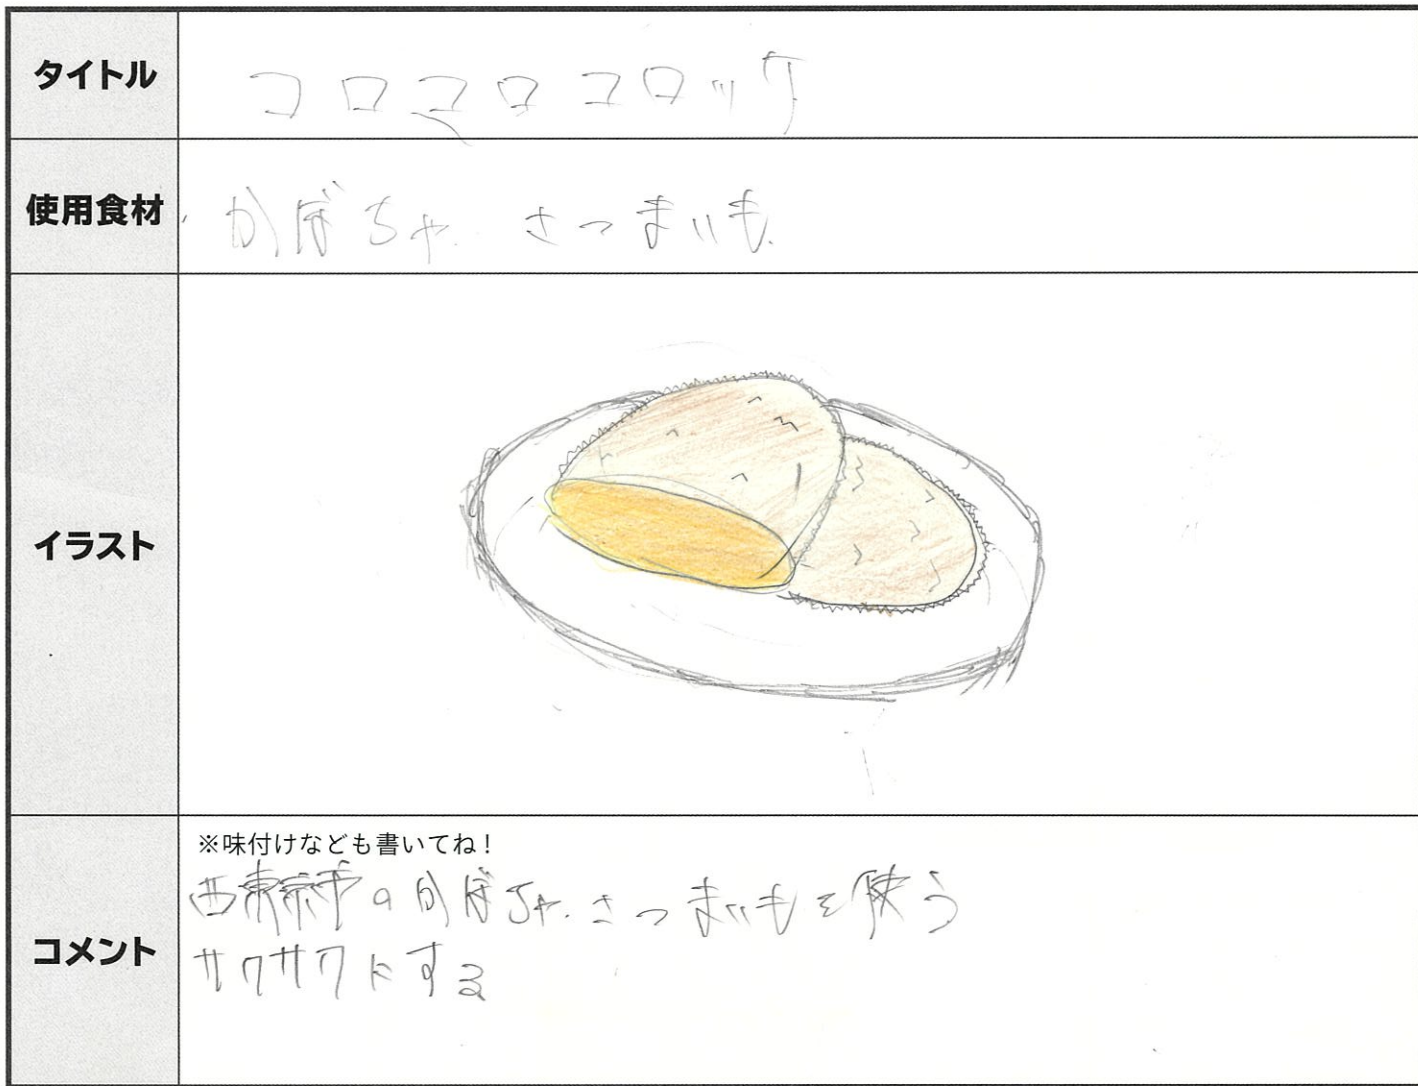 タイトル
コロコロコロッケ
使用食材
・かぼちゃ さつまいも
イラスト
コメント
※味付けなども書いてね!
西東京市のかぼちゃ、さつまいもを使う
サクサクにする